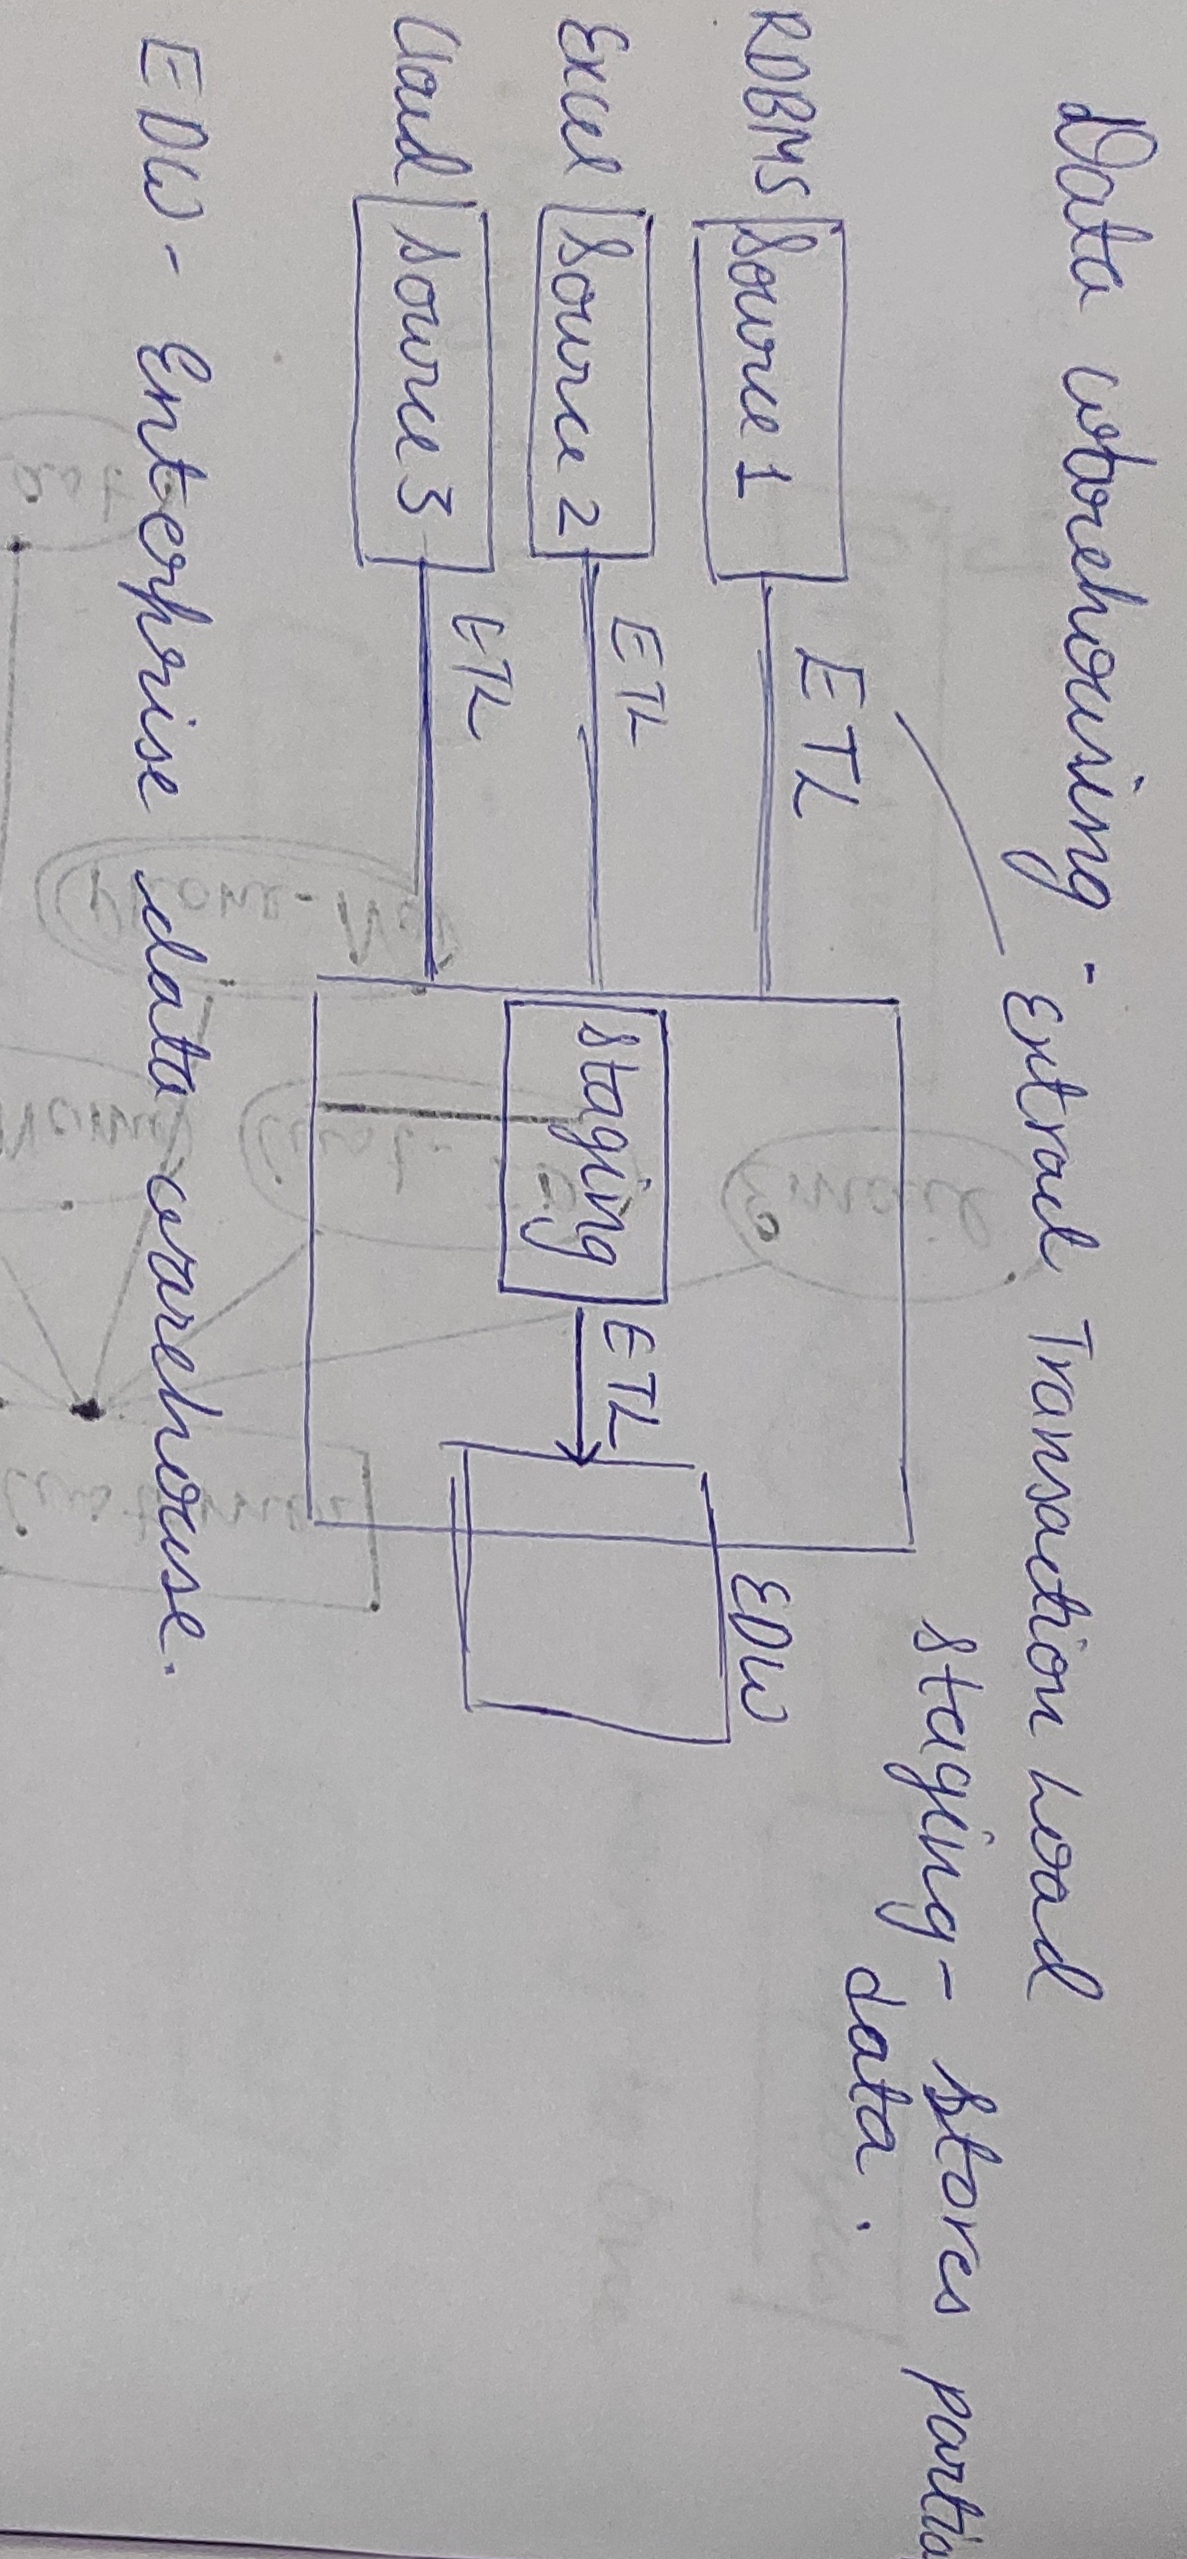 Data warehousing -
Extract Transaction Load
Staging - Stores
data.
RDBMS Source 1 ETL
Excel Source 2 ETL
Source 3 ETL
Staging ETL
EDW
EDW - Enterprise data warehouse.